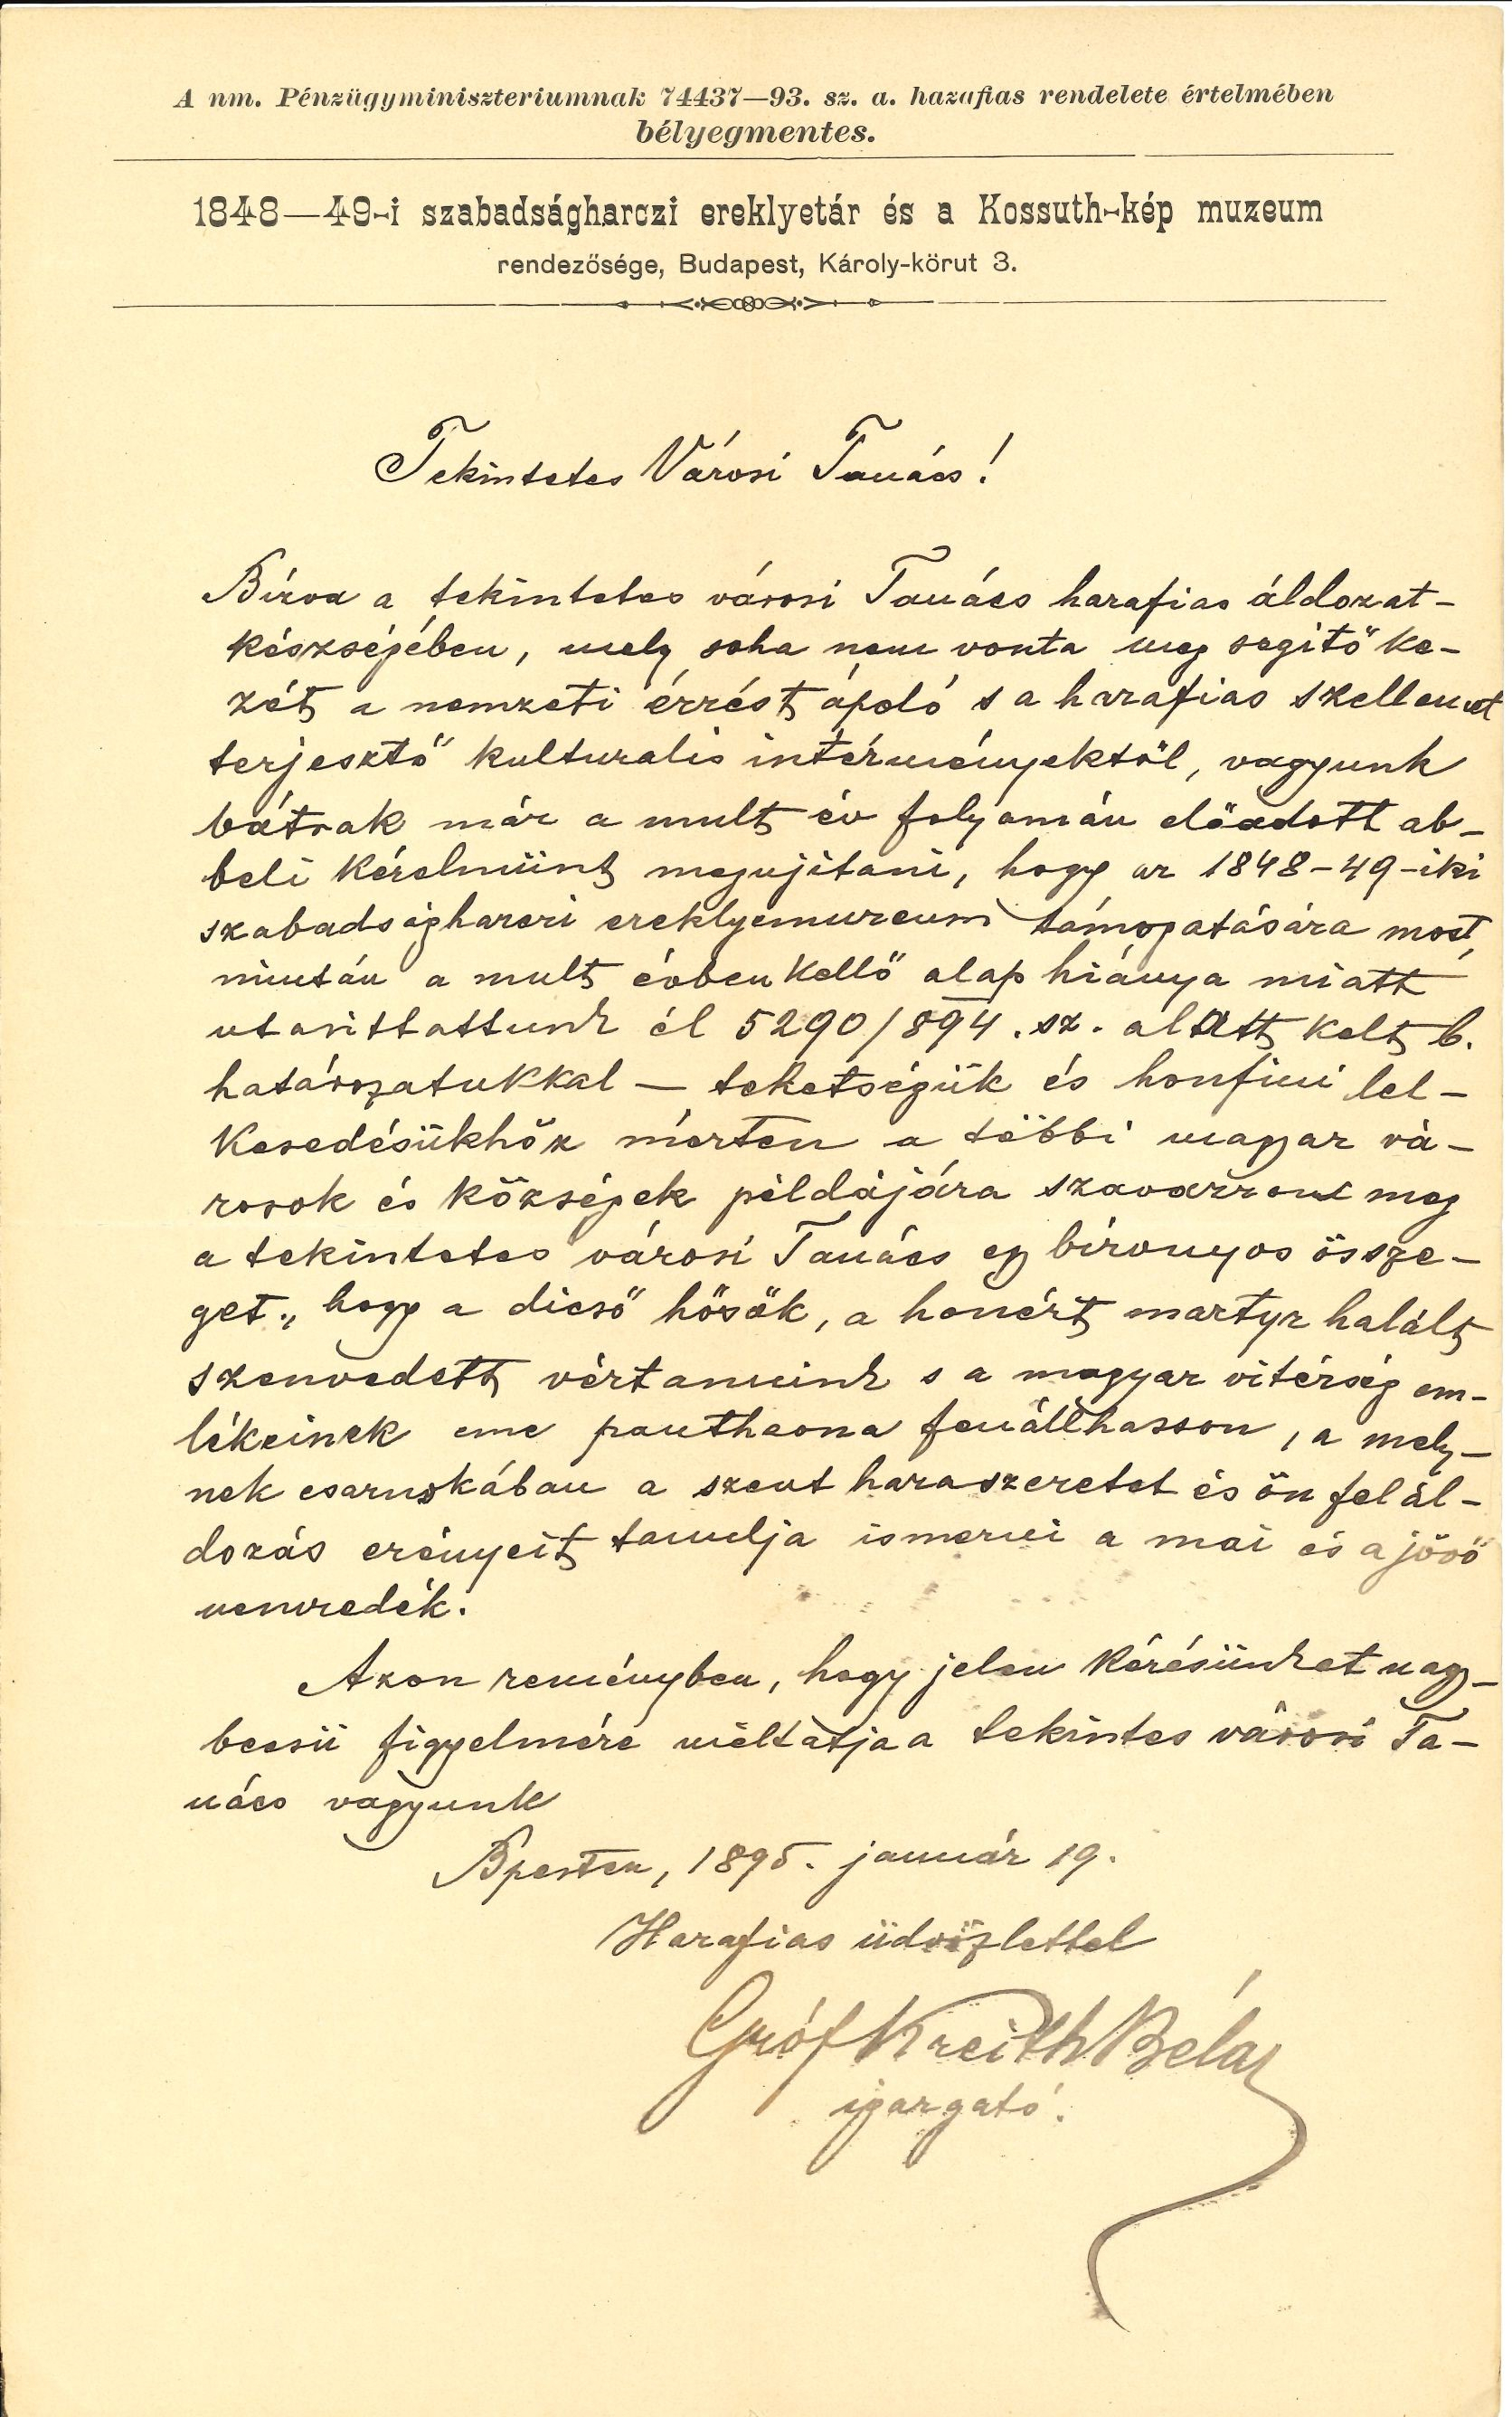 A nm. Pénzügyminiszteriumnak 74437—93. sz. a. hazafias rendelete értelmében
bélyegmentes.
1848—49-i szabadságharczi ereklyetár és a Kossuth-kép muzeum
rendezősége, Budapest, Károly-körut 3.
Tekintetes Városi Tanács!
Bízva a tekintetes városi Tanács hazafias áldozat-
készségében, mely soha nem vonta meg segitő ke-
zét a nemzeti érzést ápoló s a hazafias szellemet
terjesztő kulturalis intézményektől, vagyunk
bátrak már a mult év folyamán előadott ab-
beli kérelmünt megujitani, hogy az 1848-49-iki
szabadságharczi ereklyemuzeum támogatására most,
miután a mult évben kellő alap hiánya miatt
utasittattunk el 5290/894. sz. alatt kelt b.
határozatukkal — tehetségük és honfiui lel-
kesedésükhöz mérten a többi magyar vá-
rosok és községek példájára szavazzon meg
a tekintetes városi Tanács egy bizonyos össze-
get., hogy a dicső hősök, a honért martyr halált
szenvedett vértanuink s a magyar vitézség em-
lékeinek eme pantheona fenállhasson, a mely-
nek csarnokában a szent hazaszeretet és ön felál-
dozás erényeit tanulja ismerni a mai és a jövő
nemzedék.
Azon reményben, hogy jelen kérésünket nagy-
becsü figyelmére méltatja a tekintes városi Ta-
nács vagyunk
Bpesten, 1895. január 19.
Hazafias üdvözlettel
Gróf Kreith Béla
igazgató.